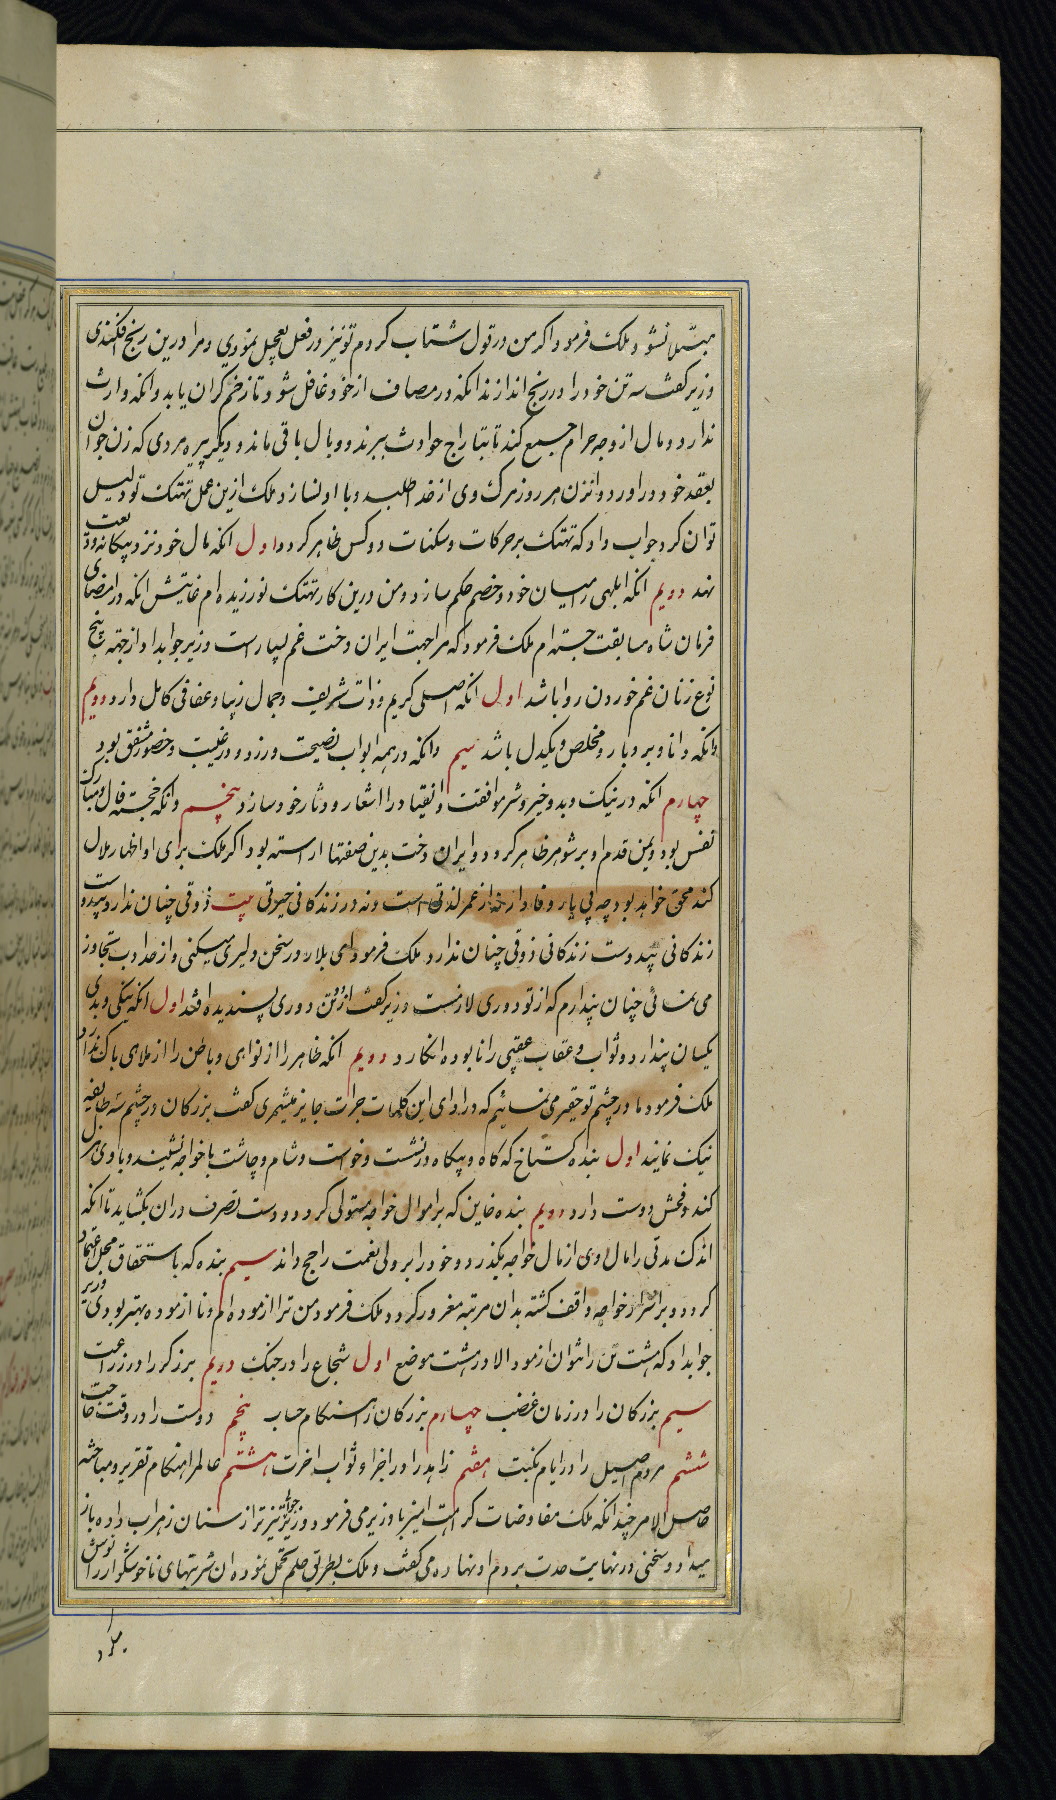 مبتلا نشود ملک فرمود اگر من در قول شتاب کردم تو نیز در فعل تعجیل نمودی و مرا درین رنج افکندی
وزیر گفت سه تن خود را در رنج اندازند انکه در مصاف از خود غافل شود تا زخم گران یابد و انکه وارث
ندارد و مال از وجه حرام جمع کند تا بتاراج حوادث ببرند و وبال باقی ماند و دیگر پیره مردی که زن جوان
بعقد خود دراورد و انزن هر روز مرک وی از خدا طلبد و با او نسازد ملک ازین عمل تهتک تو دلیل
توان کرد جواب داد که تهتک بر حرکات و سکنات دو کس ظاهر کردد اول انکه مال خود نزد بیکانه ودیعت
نهد دویم انکه ابلهی را میان خود و خصم حکم سازد و من درین کار تهتک نورزیده ام غایتش انکه در امضای
فرمان شاه مسابقت جسته ام ملک فرمود که مرا جهت ایران دخت غم بسیار است وزیر جوابداد از جهة پنج
نوع زنان غم خوردن روا باشد اول انکه اصلی کریم و ذات شریف و جمال زیبا و عفافی کامل دارد دویم
وانکه دانا و بردبار و مخلص و یکدل باشد سیم وانکه در همه ابواب نصیحت ورزد و در غیبت و حضور مشفق بود
چهارم انکه در نیک و بد و خیر و شر موافقت و انقیاد را شعار و دثار خود سازد پنجم وانکه خجسته فال و مبارک
نفس بود و یمن قدم او بر شوهر ظاهر کردد و ایران دخت بدین صفتها اراسته بود اگر ملک برای او اظهار ملال
کند محق خواهد بود چه بی یار وفادار نه از عمر لذتی است و نه در زندکانی حیوتی بیت ذوقی چنان ندارد بیدوست
زندکانی بیدوست زندکانی ذوقی چنان ندارد ملک فرمود ای بلار در سخن دلیری میکنی و از حد ادب تجاوز
می نمائی چنان پندارم که از تو دوری لازمست وزیر گفت از دو تن دوری پسندیده افتد اول انکه نیکی و بدی
یکسان پندارد و ثواب و عقاب عقبی را نابوده انکارد دویم انکه ظاهر را از نواهی و باطن را از ملاهی پاک ندارد
ملک فرمود ما در چشم تو حقیر می نمائیم که در ادای این کلمات جرات جایز میشمری گفت بزرکان در چشم سه طایفه
نیک نمایند اول بنده گستاخ که گاه و بیکاه در نشست و خواست و شام و چاشت با خواجه نشیند و با وی هزل
کند و فحش دوست دارد دویم بنده خاین که بر اموال خواجه مستولی کردد و دست تصرف دران بکشاید تا انکه
اندک مدتی را مال وی از مال خواجه بکذرد و خود را بر ولی نعمت راجح داند سیم بنده که با ستحقاق محل اعتماد
کردد و بر اسرار خواجه واقف کشته بدان مرتبه مغرور کردد ملک فرمود من ترا ازموده ام و نا ازموده بهتر بودی وزیر
جوابداد که هشت تن را نتوان ازمود الا در هشت موضع اول شجاع را در جنک دویم برزکر را در زراعت
سیم بزرکان را در زمان غضب چهارم بزرکان را هنکام حساب پنجم دوست را در وقت حاجت
ششم مردم اصیل را در ایام نکبت هفتم زاهد را در اجراء ثواب اخرت هشتم عالم را هنکام تقریر و مباحثه
حاصل الامر چندانکه ملک مفاوضات کرامت امیز با وزیر می فرمود وزیر جوابی تیز تر از سنان زهراب داده باز
میداد و سخنی در نهایت حدت بر دم او نهاده می گفت و ملک بطریق حلم تحمل نموده ان شربتهای ناخوشکوار را نوش
میکرد